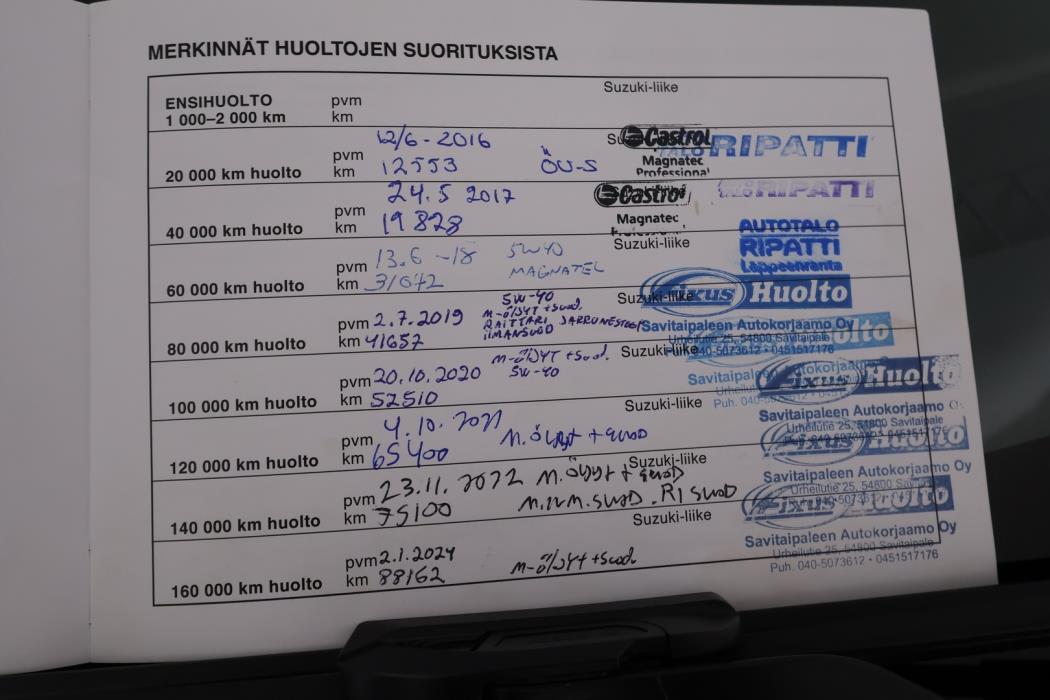 MERKINNÄT HUOLTOJEN SUORITUKSISTA
Suzuki-liike
ENSIHUOLTO pvm
1 000–2 000 km km
12/6 - 2016
Castrol RIPATTI
pvm
20 000 km huolto km 12553 ÖU-S
Magnatec
Professional
24.5 2017
Castrol RIPATTI
pvm
40 000 km huolto km 19828
Magnatec
AUTOTALO
RIPATTI
Lappeenranta
Suzuki-liike
pvm 13.6 -18 5W40
60 000 km huolto km 31672 MAGNATEC
Suzuki-liike
Fixus Huolto
5W-40
M-ÖLJYT + suod.
pvm 2.7.2019 RAITTARI JARRUNESTE
80 000 km huolto km 41657 ILMANSUOD
Savitaipaleen Autokorjaamo Oy
Urheilutie 25, 54800 Savitaipale
Puh. 040-5073612 • 0451517176
Huolto
Suzuki-liike
M-ÖLJYT + suod.
pvm 20.10.2020 5W-40
100 000 km huolto km 52510
Savitaipaleen Autokorjaamo
Urheilutie
Puh. 040-5073612
Fixus Huolto
Suzuki-liike
pvm 4.10.2021
120 000 km huolto km 65400 M.Öljyt + suod
Savitaipaleen Autokorjaamo
Urheilutie 25, 54800 Savitaipale
Puh. 040-5073612 0451517176
Fixus Huolto
Suzuki-liike
pvm 23.11.2022 M.Öljyt + suod
140 000 km huolto km 75100 SUOD. RI SUOD
Savitaipaleen Autokorjaamo Oy
Urheilutie 25, 54800 Savitaipale
Fixus Huolto
Suzuki-liike
pvm 2.1.2024
160 000 km huolto km 88162 M-ÖLJYT + suod
Savitaipaleen Autokorjaamo Oy
Urheilutie 25, 54800 Savitaipale
Puh. 040-5073612 • 0451517176